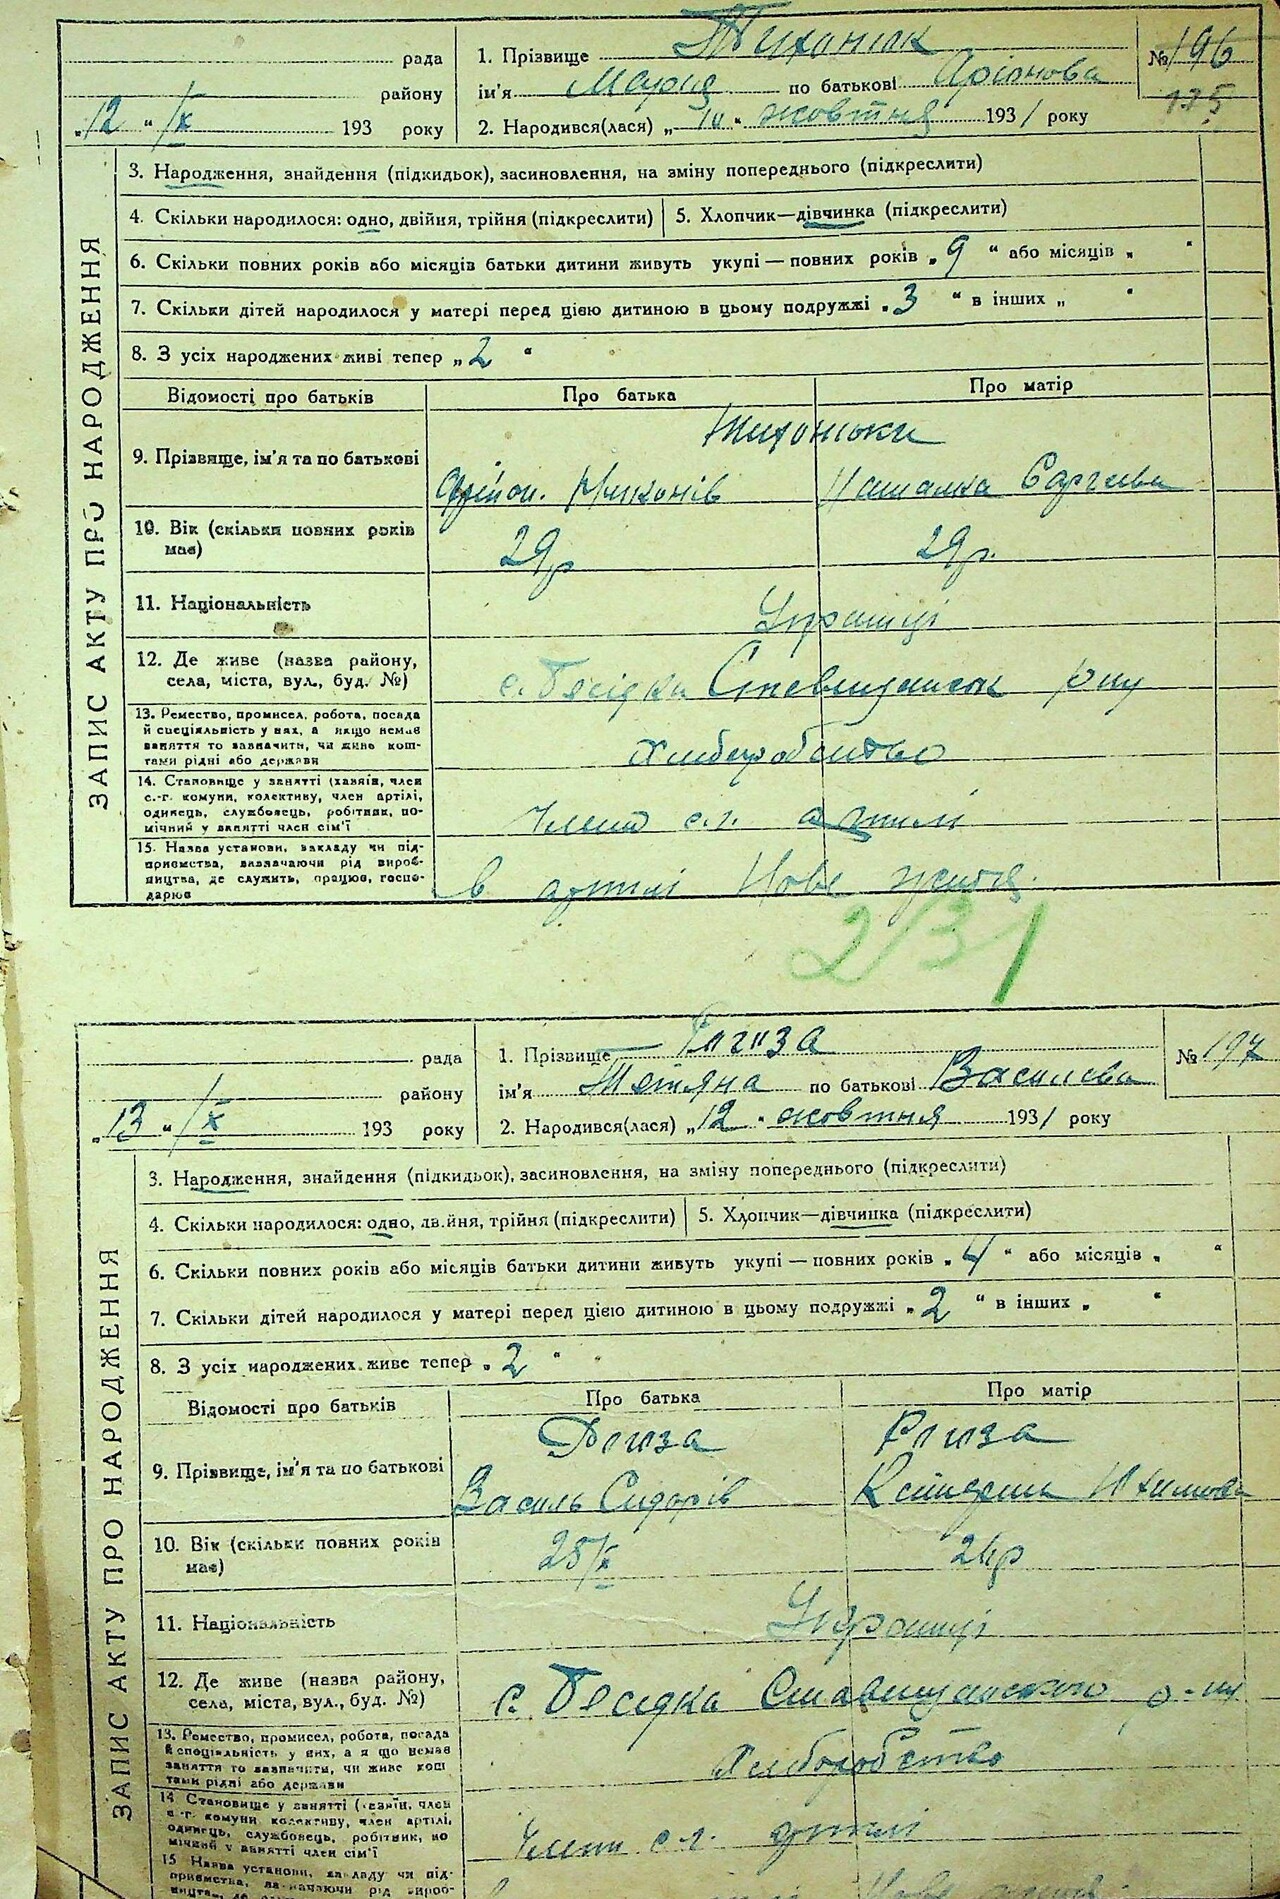 рада
району
„12 “ /X 193 року
1. Прізвище Тихонюк
ім'я Марія по батькові
2. Народився(лася) „ “ жовтня 1931 року
№ 196
175
ЗАПИС АКТУ ПРО НАРОДЖЕННЯ
3. Народження, знайдення (підкидьок), засиновлення, на зміну попереднього (підкреслити)
4. Скільки народилося: одно, двійня, трійня (підкреслити) 5. Хлопчик—дівчинка (підкреслити)
6. Скільки повних років або місяців батьки дитини живуть укупі — повних років „ 9 “ або місяців „ “
7. Скільки дітей народилося у матері перед цією дитиною в цьому подружжі „ 3 “ в інших „ “
8. З усіх народжених живі тепер „ 2 “
Відомості про батьків Про батька Про матір
Тихонюки
9. Прізвище, ім'я та по батькові
10. Вік (скільки повних років має) 29 р 29 р.
11. Національність Українці
12. Де живе (назва району,
села, міста, вул., буд. №) с. Бесідка Ставищанськ р-ну
13. Ремество, промисел, робота, посада
й спеціяльність у них, а якщо немає
заняття то зазначити, чи живе кош-
тами рідні або держави
Хліборобство
14. Становище у занятті (хазяїн, член
с.-г. комуни, колективу, член артілі,
одинець, службовець, робітник, по-
мічний у занятті член сім'ї
Члени с.г. артілі
15. Назва установи, закладу чи під-
приємства, зазначаючи рід вироб-
ництва, де служить, працює, госпо-
дарює
в артілі Нове життя.
231
рада
району
„13 “ /X 193 року
1. Прізвище
ім'я Тетяна по батькові Василева
2. Народився(лася) „12 “ жовтня 1931 року
№ 197
ЗАПИС АКТУ ПРО НАРОДЖЕННЯ
3. Народження, знайдення (підкидьок), засиновлення, на зміну попереднього (підкреслити)
4. Скільки народилося: одно, двійня, трійня (підкреслити) 5. Хлопчик—дівчинка (підкреслити)
6. Скільки повних років або місяців батьки дитини живуть укупі — повних років „ 4 “ або місяців „ “
7. Скільки дітей народилося у матері перед цією дитиною в цьому подружжі „ 2 “ в інших „ “
8. З усіх народжених живе тепер „ 2 “
Відомості про батьків Про батька Про матір
9. Прізвище, ім'я та по батькові
Василь Сидорів Катерина Юхимова
10. Вік (скільки повних років
має)
11. Національність Українці
12. Де живе (назва району,
села, міста, вул., буд. №) с. Бесідка Ставищанського р-ну
13. Ремество, промисел, робота, посада
й спеціяльність у них, а якщо немає
заняття то зазначити, чи живе кош
тами рідні або держави
Хліборобство
14 Становище у занятті (хазяїн, член
с.-г. комуни колективу, член артілі,
одинець, службовець, робітник, по
мічний у занятті член сім'ї
Члени с.г. артілі
15 Назва установи, закладу чи під-
приємства, зазначаючи рід вироб-
ництва, де